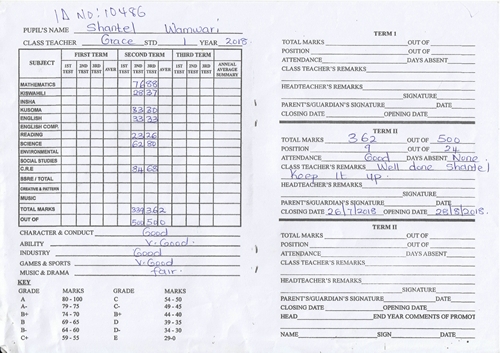 ID NO: 10486
PUPIL'S NAME Shantel Wamwari
CLASS TEACHER Grace STD 1 YEAR 2018
SUBJECT FIRST TERM SECOND TERM THIRD TERM ANNUAL AVERAGE SUMMARY
1ST TEST 2ND TEST 3RD TEST AVER 1ST TEST 2ND TEST 3RD TEST AVER 1ST TEST 2ND TEST 3RD TEST AVER
MATHEMATICS 76 88
KISWAHILI 28 37
INSHA
KUSOMA 33 30
ENGLISH 33 33
ENGLISH COMP.
READING 23 26
SCIENCE 62 80
ENVIRONMENTAL
SOCIAL STUDIES
C.R.E 84 68
SSRE / TOTAL
CREATIVE & PATTERN
MUSIC
TOTAL MARKS 339 362
OUT OF 500 500
CHARACTER & CONDUCT Good
ABILITY V. Good
INDUSTRY Good
GAMES & SPORTS V. Good
MUSIC & DRAMA fair.
KEY
GRADE MARKS GRADE MARKS
A 80 - 100 C 54 - 50
A- 79 - 75 C- 49 - 45
B+ 74 - 70 B+ 44 - 40
B 69 - 65 D 39 - 35
B- 64 - 60 D- 34 - 30
C+ 59 - 55 E 29-0
TERM I
TOTAL MARKS OUT OF
POSITION OUT OF
ATTENDANCE DAYS ABSENT
CLASS TEACHER'S REMARKS
HEADTEACHER'S REMARKS
SIGNATURE
PARENT'S/GUARDIAN'S SIGNATURE DATE
CLOSING DATE OPENING DATE
TERM II
TOTAL MARKS 362 OUT OF 500
POSITION 9 OUT OF 24
ATTENDANCE Good DAYS ABSENT None
CLASS TEACHER'S REMARKS Well done Shantel
Keep it up.
HEADTEACHER'S REMARKS
SIGNATURE
PARENT'S/GUARDIAN'S SIGNATURE DATE
CLOSING DATE 26/7/2018 OPENING DATE 28/8/2018.
TERM II
TOTAL MARKS OUT OF
POSITION OUT OF
ATTENDANCE DAYS ABSENT
CLASS TEACHER'S REMARKS
HEADTEACHER'S REMARKS
SIGNATURE
PARENT'S/GUARDIAN'S SIGNATURE DATE
CLOSING DATE OPENING DATE
HEAD END YEAR COMMENTS OF PROMOT
NAME SIGN DATE